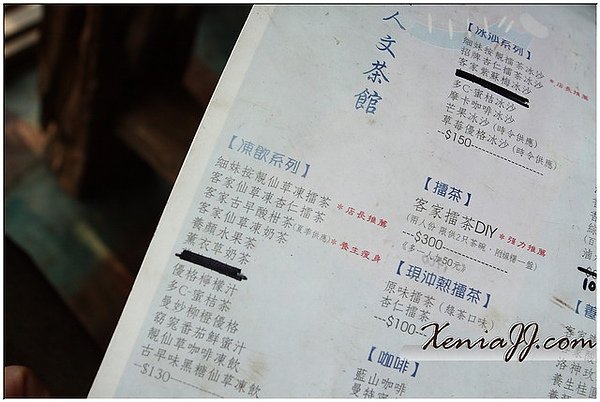 人文茶館
【冰沙系列】
細妹按靚擂茶冰沙
招牌杏仁擂茶冰沙
客家紫蘇梅冰沙 *店長推薦
多C-蜜桔冰沙
摩卡咖啡冰沙
芒果冰沙(時令供應)
草莓優格冰沙(時令供應)
--$150--
【凍飲系列】
細妹按靚仙草凍擂茶
客家仙草凍杏仁擂茶 *店長推薦
客家古早酸柑茶(夏季供應)*養生瘦身
客家仙草凍奶茶
養顏水果茶
薰衣草奶茶
優格檸檬汁
多C-蜜桔茶
曼妙柳橙優格
窈窕番茄鮮蜜汁
靚仙草咖啡凍飲
古早味黑糖仙草凍飲
--$130--
【擂茶】
客家擂茶DIY *強力推薦
(兩人份 限供2只茶碗，附擂粿一盤)
--$300--
《多一人加50元》
【現沖熱擂茶】
原味擂茶(綠茶口味)
杏仁擂茶
--$100--
【咖啡】
藍山咖啡
10
XeniaJJ.com